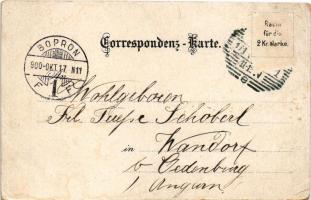 Correspondenz-Karte.
Raum
für die
2 Kr. Marke.
SOPRON
900 OKT 17 N11
F 1 F
Wohlgeboren
Frl. Schöberl
in
Wandorf
b Oedenburg
/ Ungarn.